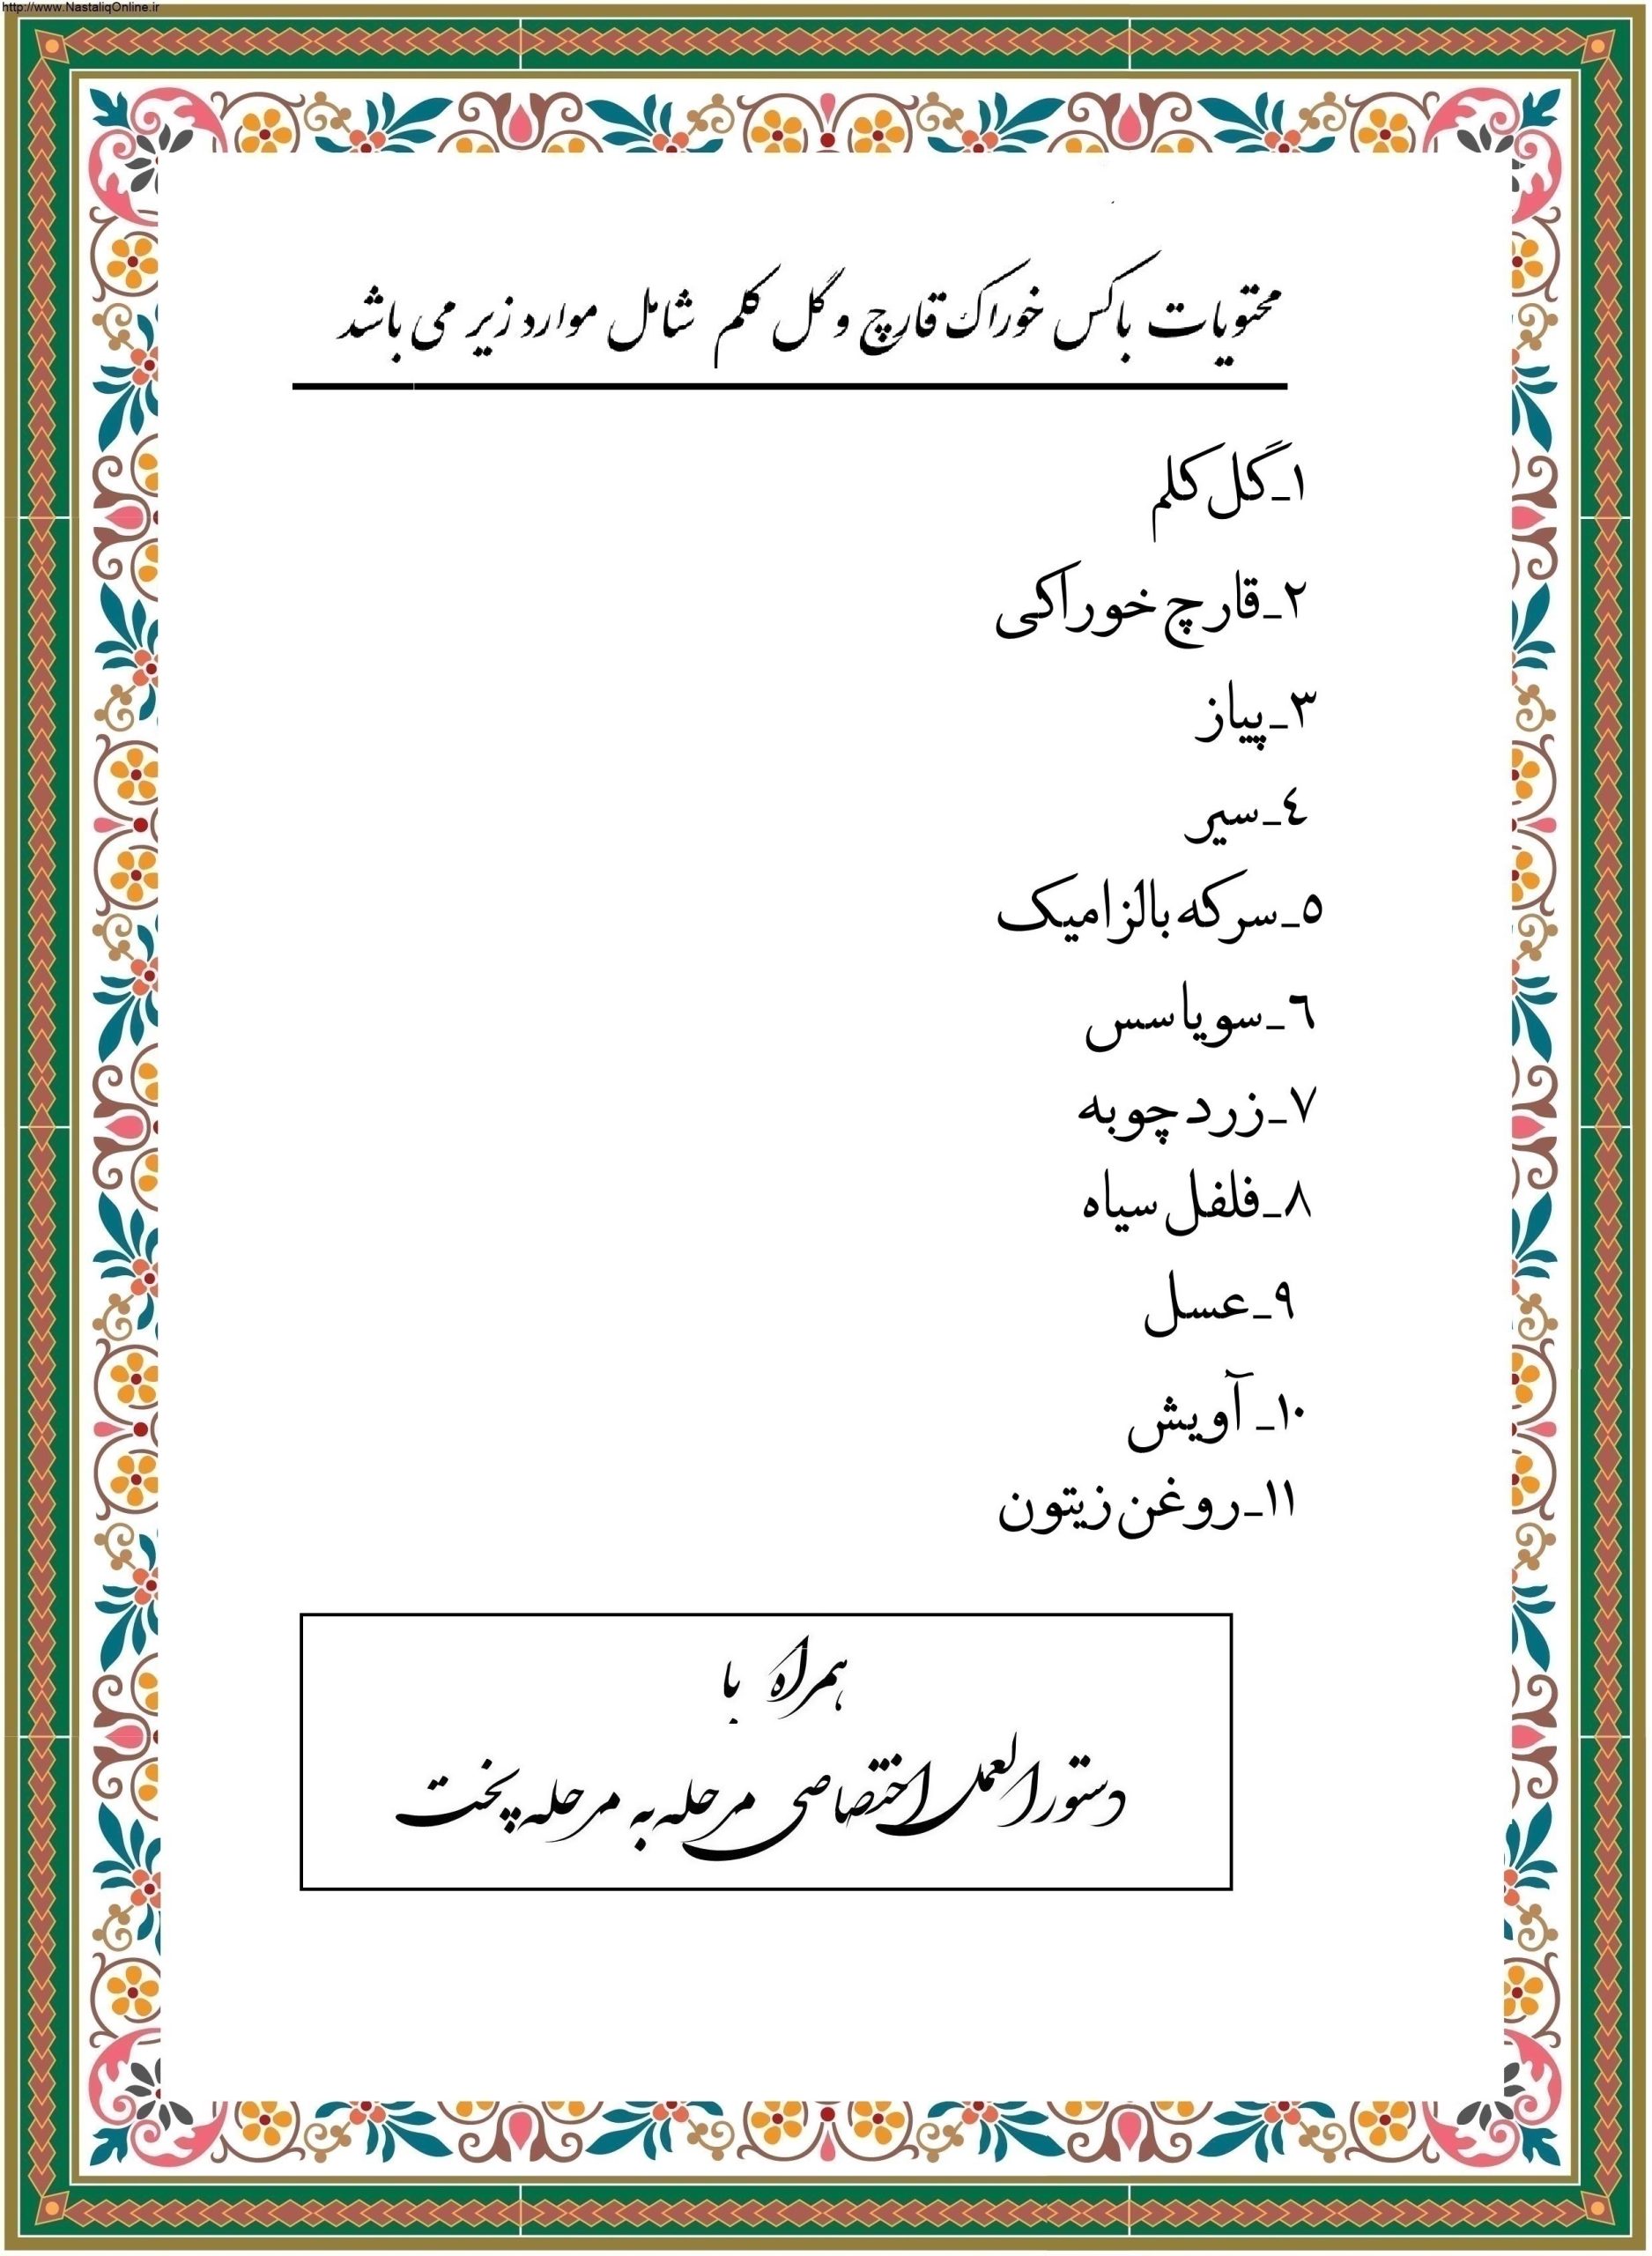 http://www.NastaliqOnline.ir
محتویات باکس خوراک قارچ و گل کلم شامل موارد زیر می باشد
۱_گل کلم
۲_قارچ خوراکی
۳_پیاز
٤_سیر
٥_سرکه بالزامیک
٦_سویاسس
۷_زردچوبه
۸_فلفل سیاه
۹_عسل
۱۰_آویش
۱۱_روغن زیتون
همراه با
دستورالعمل اختصاصی مرحله به مرحله پخت